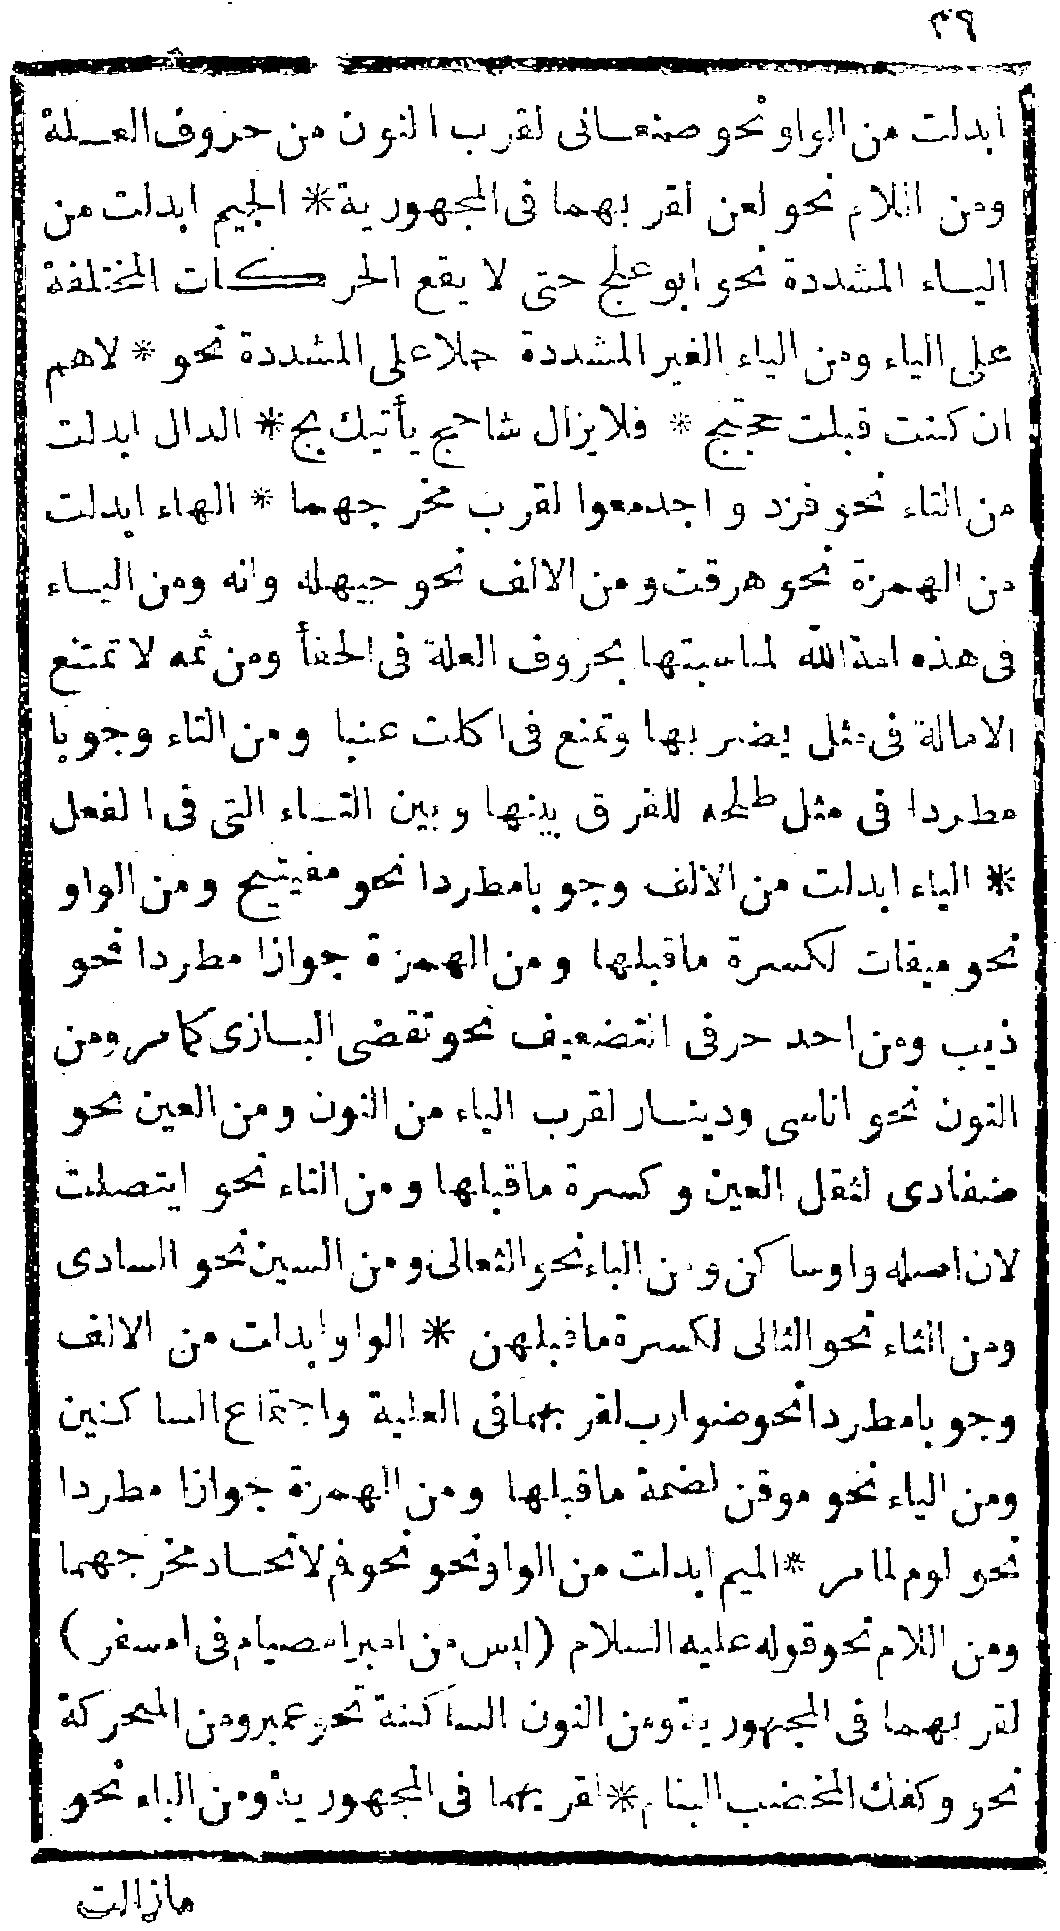 ٣٩
ابدلت من الواو نحو صنعانى لقرب النون من حروف العلة
ومن اللام نحو لعن لقربهما فى المجهورية * الجيم ابدلت من
الياء المشددة نحو ابو علج حتى لا يقع الحركات المختلفة
على الياء ومن الياء الغير المشددة حملا على المشددة نحو * لاهم
ان كنت قبلت حجتج * فلا يزال شاحج يأتيك بج * الدال ابدلت
من التاء نحو فزد واجدمعوا لقرب مخرجهما * الهاء ابدلت
من الهمزة نحو هرقت ومن الالف نحو حيهله وانه ومن الياء
فى هذه امة الله لمناسبتها بحروف العلة فى الخفأ ومن ثمه لا تمتنع
الامالة فى مثل يضربها وتمنع فى اكلت عنبا ومن التاء وجوبا
مطردا فى مثل طلحه للفرق بينها وبين التاء التى فى الفعل
* الياء ابدلت من الالف وجوبا مطردا نحو مفيتيح ومن الواو
نحو ميقات لكسرة ما قبلها ومن الهمزة جوازا مطردا نحو
ذيب ومن احد حرفى التضعيف نحو تقضى البازى كما مر ومن
النون نحو اناسى ودينار لقرب الياء من النون ومن العين نحو
ضفادى لثقل العين وكسرة ما قبلها ومن التاء نحو ايتصلت
لان اصله واو ساكن ومن الباء نحو الثعالى ومن السين نحو السادى
ومن الثاء نحو الثالى لكسرة ما قبلهن * الواو ابدلت من الالف
وجوبا مطردا نحو ضوارب لقربهما فى العلية واجتماع الساكنين
ومن الياء نحو موقن لضمة ما قبلها ومن الهمزة جوازا مطردا
نحو لوم لما مر * الميم ابدلت من الواو نحو نحو فم لاتحاد مخرجهما
ومن اللام نحو قوله عليه السلام (ليس من امبر امصيام فى امسفر)
لقربهما فى المجهورية ومن النون الساكنة نحو عمبر ومن المتحركة
نحو وكفك المخضب البنام * لقربهما فى المجهورية ومن الباء نحو
مازالت